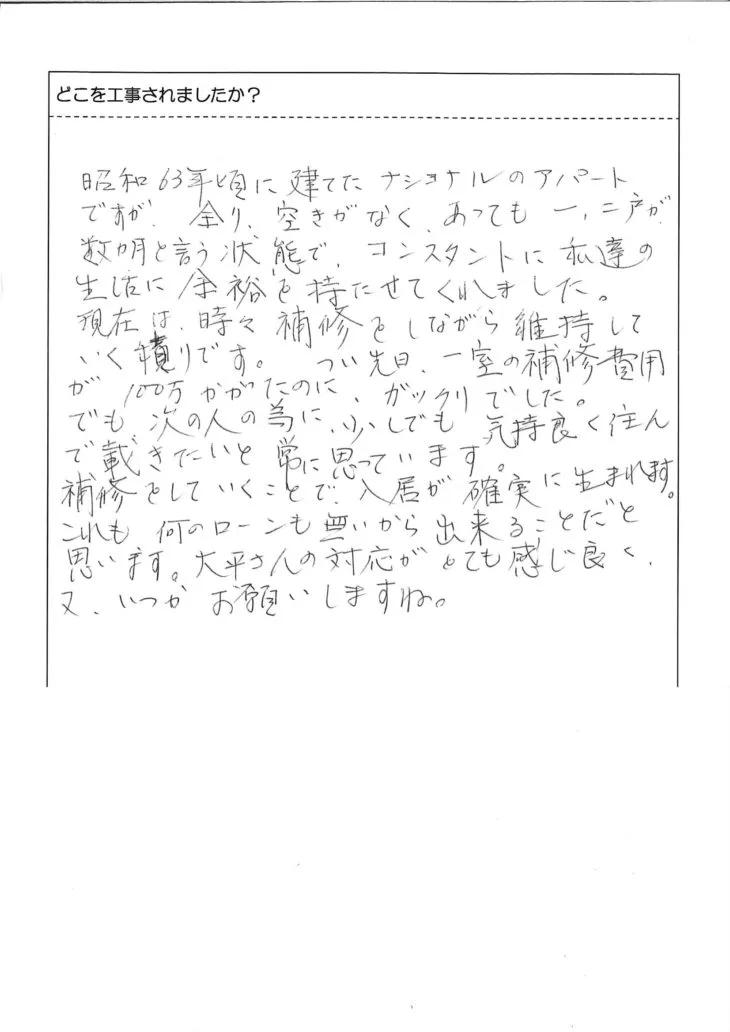 どこを工事されましたか？
昭和63年頃に建てたナショナルのアパート
ですが、余り、空きがなく、あっても一、二戸が、
数カ月と言う状態で、コンスタントに私達の
生活に余裕を持たせてくれました。
現在は、時々補修をしながら維持して
いく積りです。つい先日、一室の補修費用
が100万かかったのに、ガックリでした。
でも次の人の為に、少しでも気持良く住ん
で載きたいと常に思っています。
補修をしていくことで、入居が確実に生まれます。
これも何のローンも無いから出来ることだと
思います。大平さんの対応がとても感じ良く、
又、いつかお願いしますね。